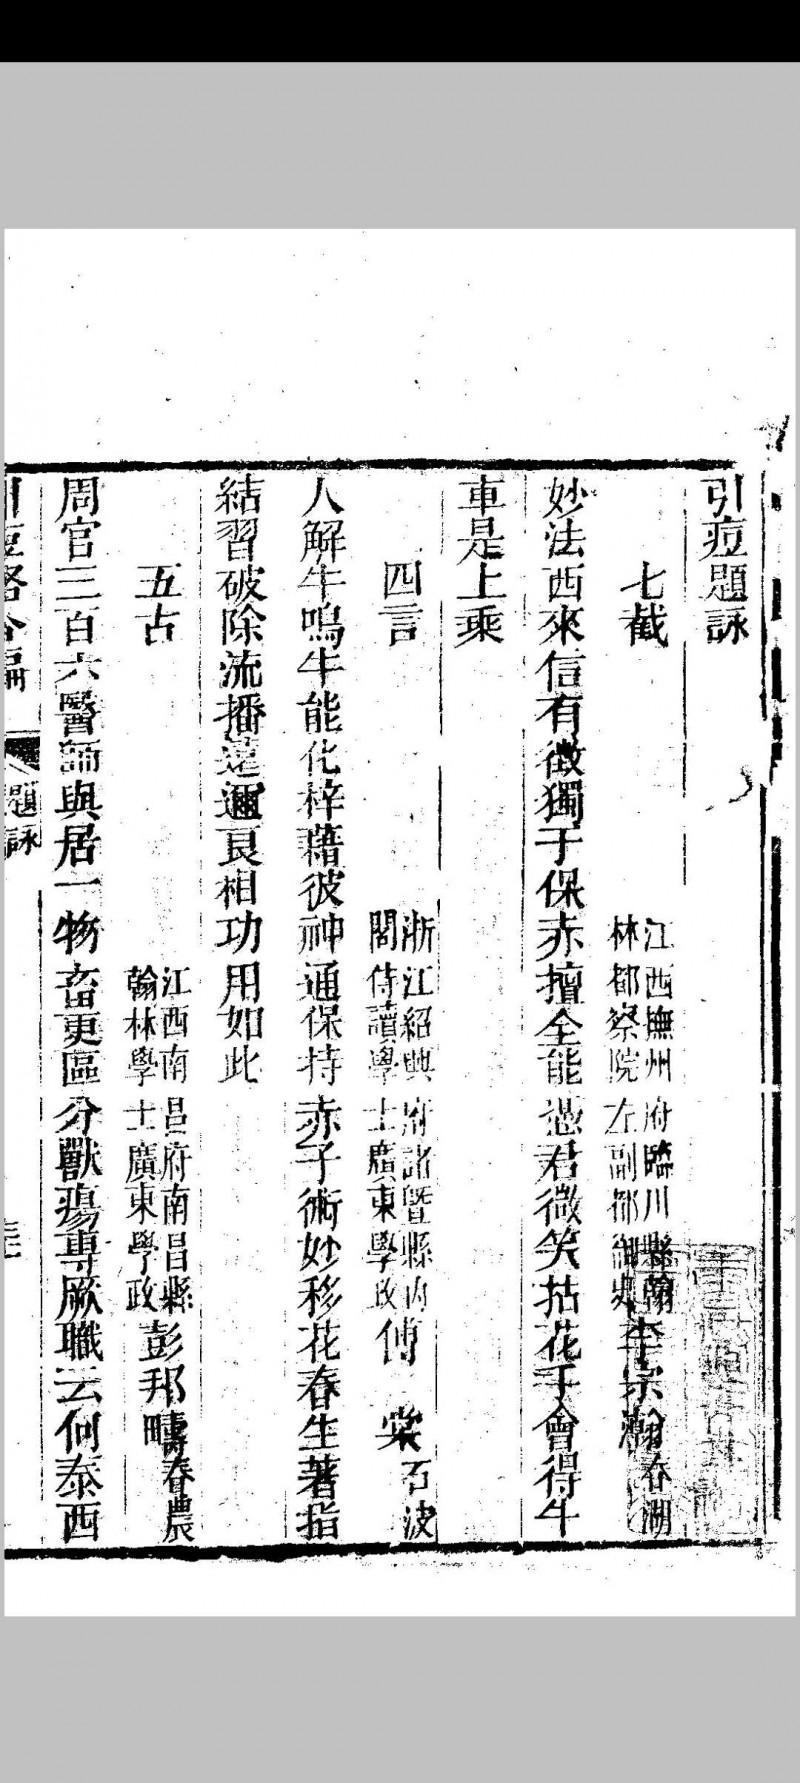 引痘題詠
七截
江西撫州府臨川縣翰
林都察院左副都御史
李宗瀚春湖
妙法西來信有徵獨于保赤擅全能憑君微笑拈花手會得牛
車是上乘
四言
浙江紹興府諸暨縣內
閣侍讀學士廣東學政
傅棠石波
人解牛鳴牛能化梓藉彼神通保持赤子術妙移花春生著指
結習破除流播遠邇良相功用如此
五古
江西南昌府南昌縣
翰林學士廣東學政
彭邦疇春農
周官三百六醫師與居一物畜更區分獸瘍専厥職云何泰西
引痘畧合編
題詠